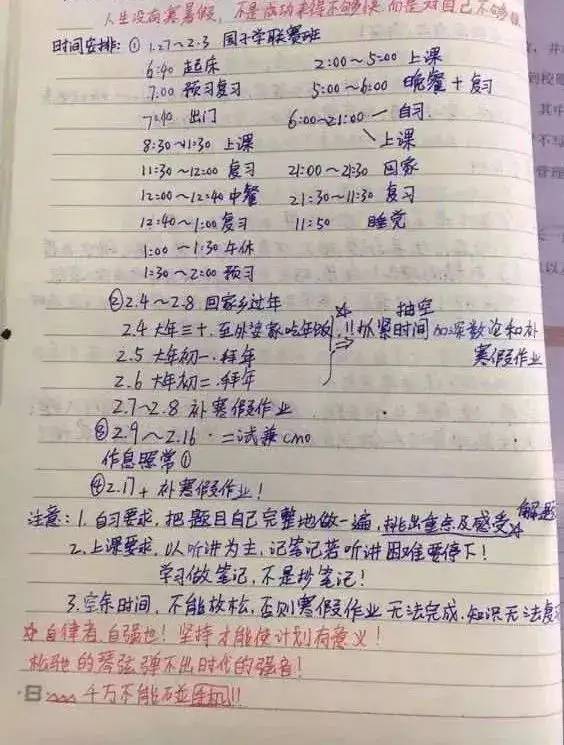 人生没有寒暑假，不是成功来得不够快，而是对自己不够狠
时间安排：① 1.27～2.3 国小学联赛班
6:40 起床
2:00～5:00 上课
7:00 预习复习
5:00～6:00 晚餐 + 复习
7:40 出门
6:00～21:00 一 自习
8:30～11:30 上课
上课
11:30～12:00 复习
21:00～21:30 回家
12:00～12:40 中餐
21:30～11:30 复习
12:40～1:00 复习
11:50 睡觉
1:00～1:30 午休
1:30～2:00 预习
②2.4～2.8 回家乡过年
抽空
2.4 大年三十、至外婆家吃年饭
!! 抓紧时间 加深数论和补
寒假作业
2.5 大年初一、拜年
2.6 大年初二、拜年
2.7～2.8 补寒假作业
③2.9～2.16、二试兼CMO
作息照常①
④2.17+ 补寒假作业！
注意：1. 自习要求，把题目自己完整地做一遍，挑出重点及感受
解题
2. 上课要求，以听讲为主，记笔记若听讲困难要停下！
学习做笔记，不是抄笔记！
3. 空余时间，不能放松，否则寒假作业无法完成，知识无法复
☆ 自律者，自强也！坚持才能使计划有意义！
松弛的琴弦弹不出时代的强音！
千万不能不应手机!!